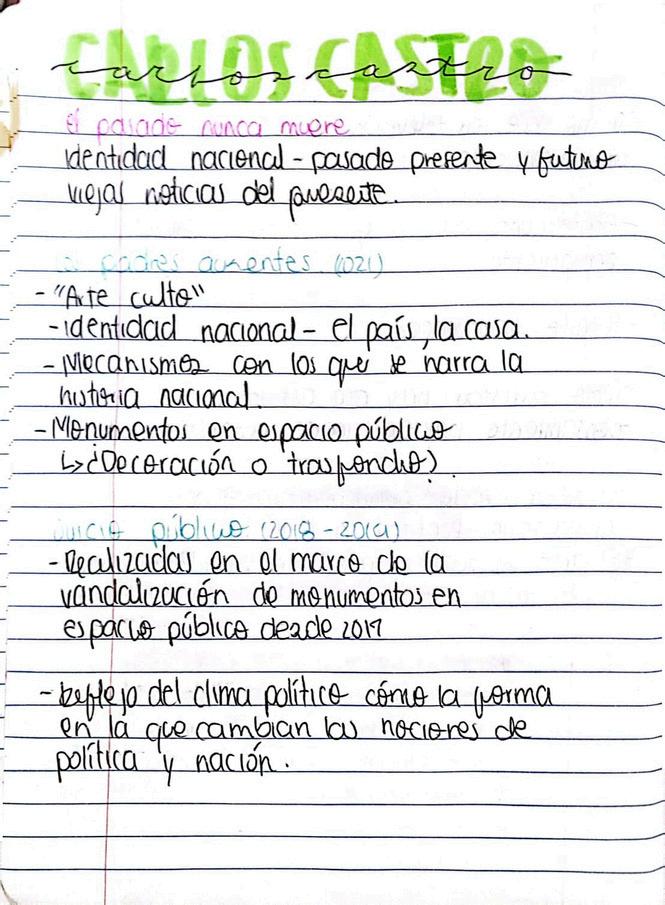 CARLOS CASTRO
carlos castro
el pasado nunca muere
Identidad nacional - pasado presente y futuro
viejas noticias del presente.
padres ausentes (1021)
- "Arte culto"
- identidad nacional - el país, la casa.
- Mecanismos con los que se narra la
historia nacional.
- Monumentos en espacio público
↳ ¿Decoración o trasfondo?
Juicio público (2018-2019)
- Realizadas en el marco de la
vandalización de monumentos en
espacio público desde 2017
- Reflejo del clima político cómo la forma
en la que cambian las nociones de
política y nación.